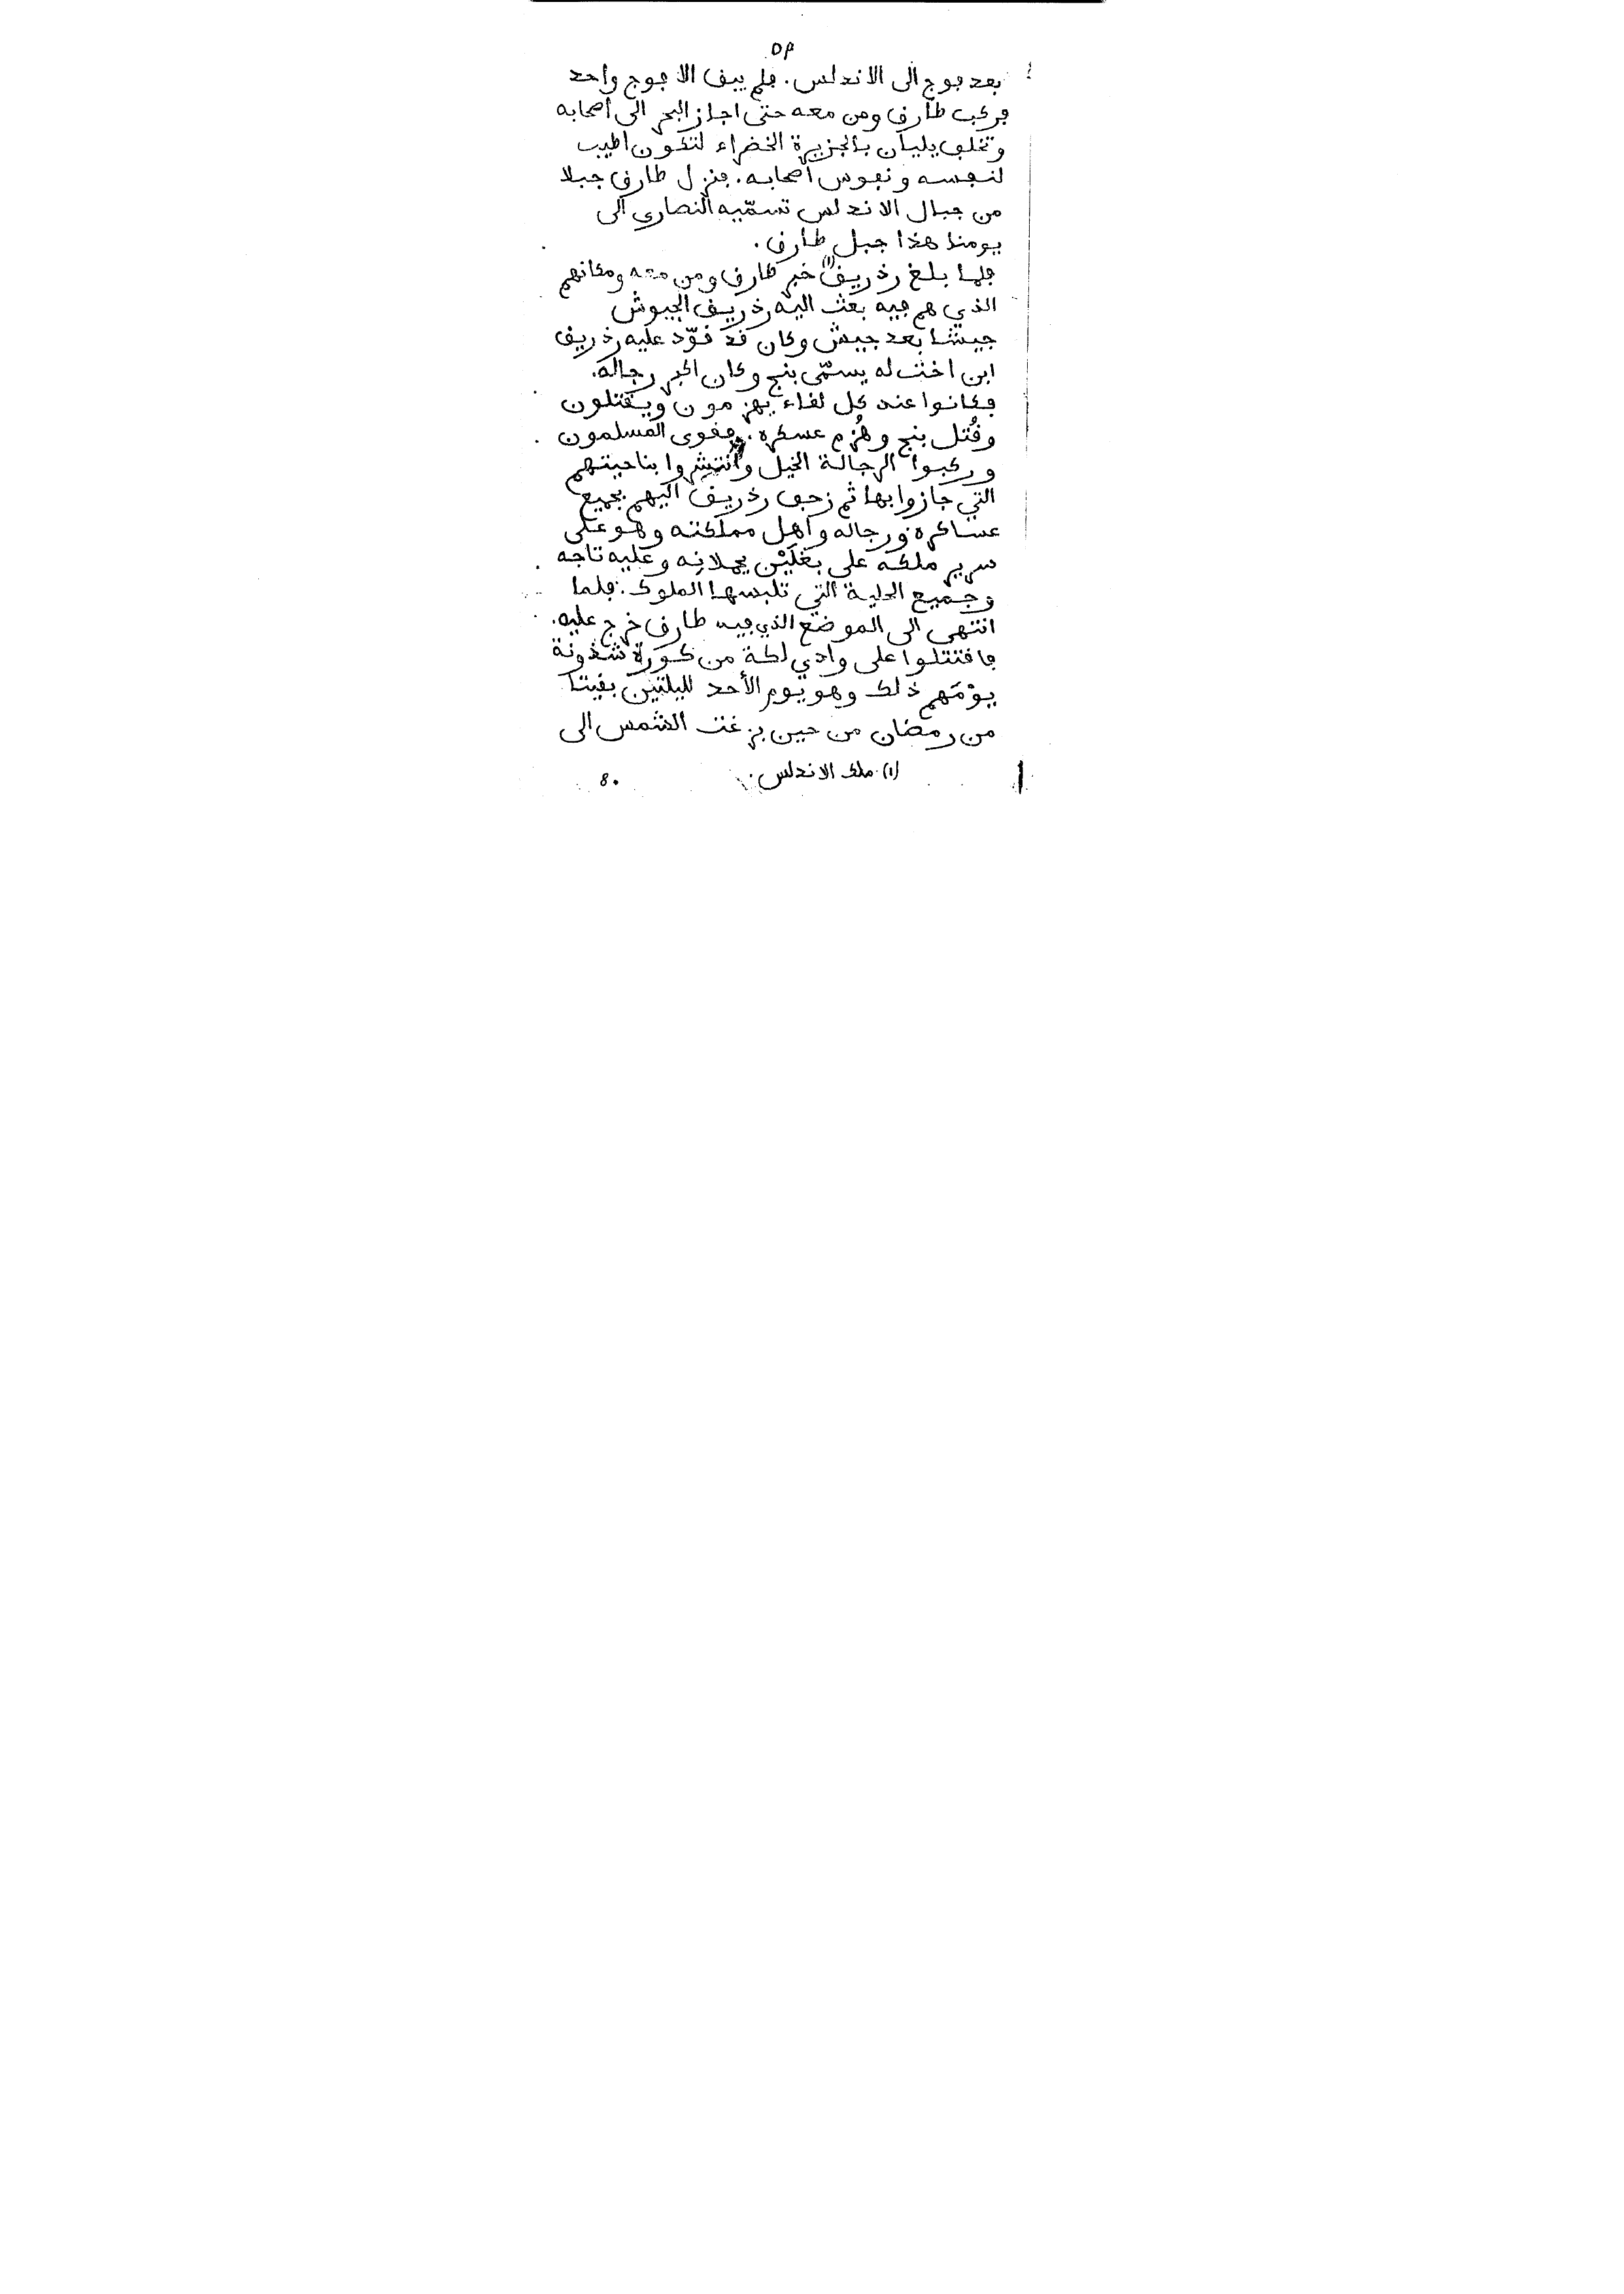 بعد فوج الى الاندلس. فلم يبق الا فوج واحد
فركب طارق ومن معه حتى اجاز البحر الى أصحابه
وتخلف يليان بالجزيرة الخضراء لتكون اطيب
لنفسه ونفوس أصحابه. فنزل طارق جبلا
من جبال الاندلس تسمّيه النصارى الى
يومنا هذا جبل طارق.
فلما بلغ رذريق (١) خبر طارق ومن معه ومكانهم
الذي هم فيه بعث اليه رذريق الجيوش
جيشا بعد جيش وكان قد قوّد عليه رذريق
ابن اخت له يسمّى بنج وكان اكبر رجاله.
فكانوا عند كل لقاء يهزمون ويقتلون
وقُتل بنج وهُزم عسكره. فقوى المسلمون
وركبوا الرجالة الخيل وانتشروا بناحيتهم
التي جازوا بها ثم زحف رذريق اليهم بجميع
عساكره ورجاله وأهل مملكته وهو على
سرير ملكه على بغلَيْن يحملانِه وعليه تاجه
وجميع الحلية التي تلبسها الملوك. فلما
انتهى الى الموضع الذي فيه طارق خرج عليه.
فاقتتلوا على وادي لكة من كورة شذونة
يوْمَهم ذلك وهو يوم الأحد لليلتين بقيتا
من رمضان من حين بزغت الشمس الى
(١) ملك الاندلس.
8٠